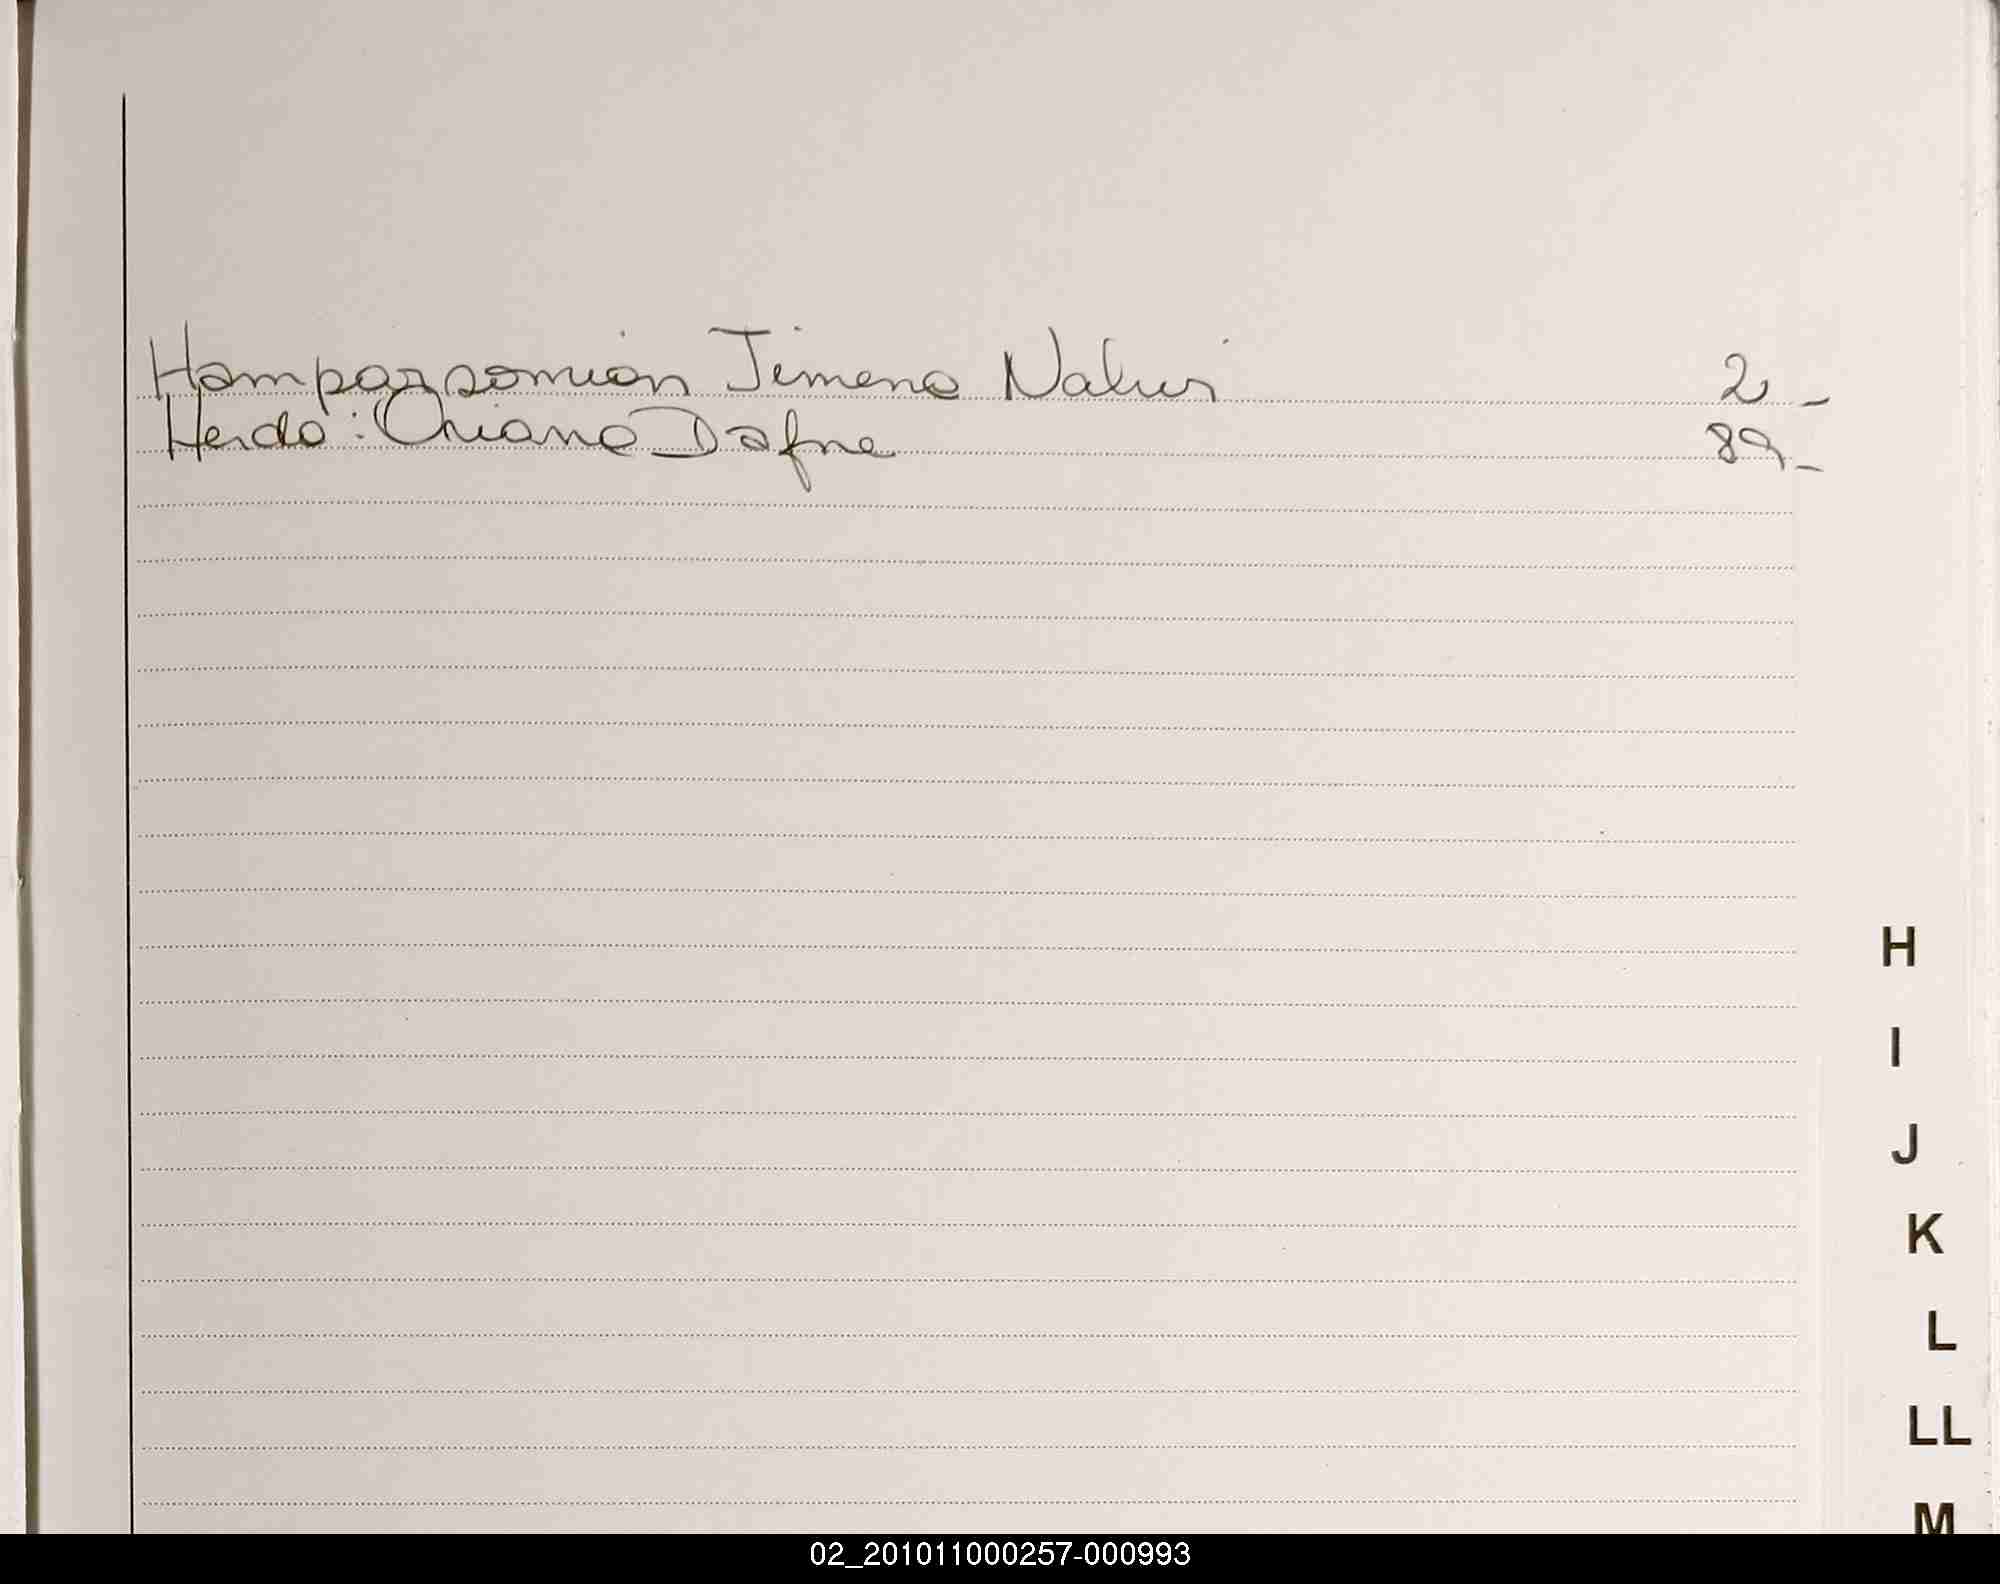 Hamparsomian Jimena Nahir 2 -
Herdo: Oriana Dafne 89 -
H
I
J
K
L
LL
M
02_201011000257-000993